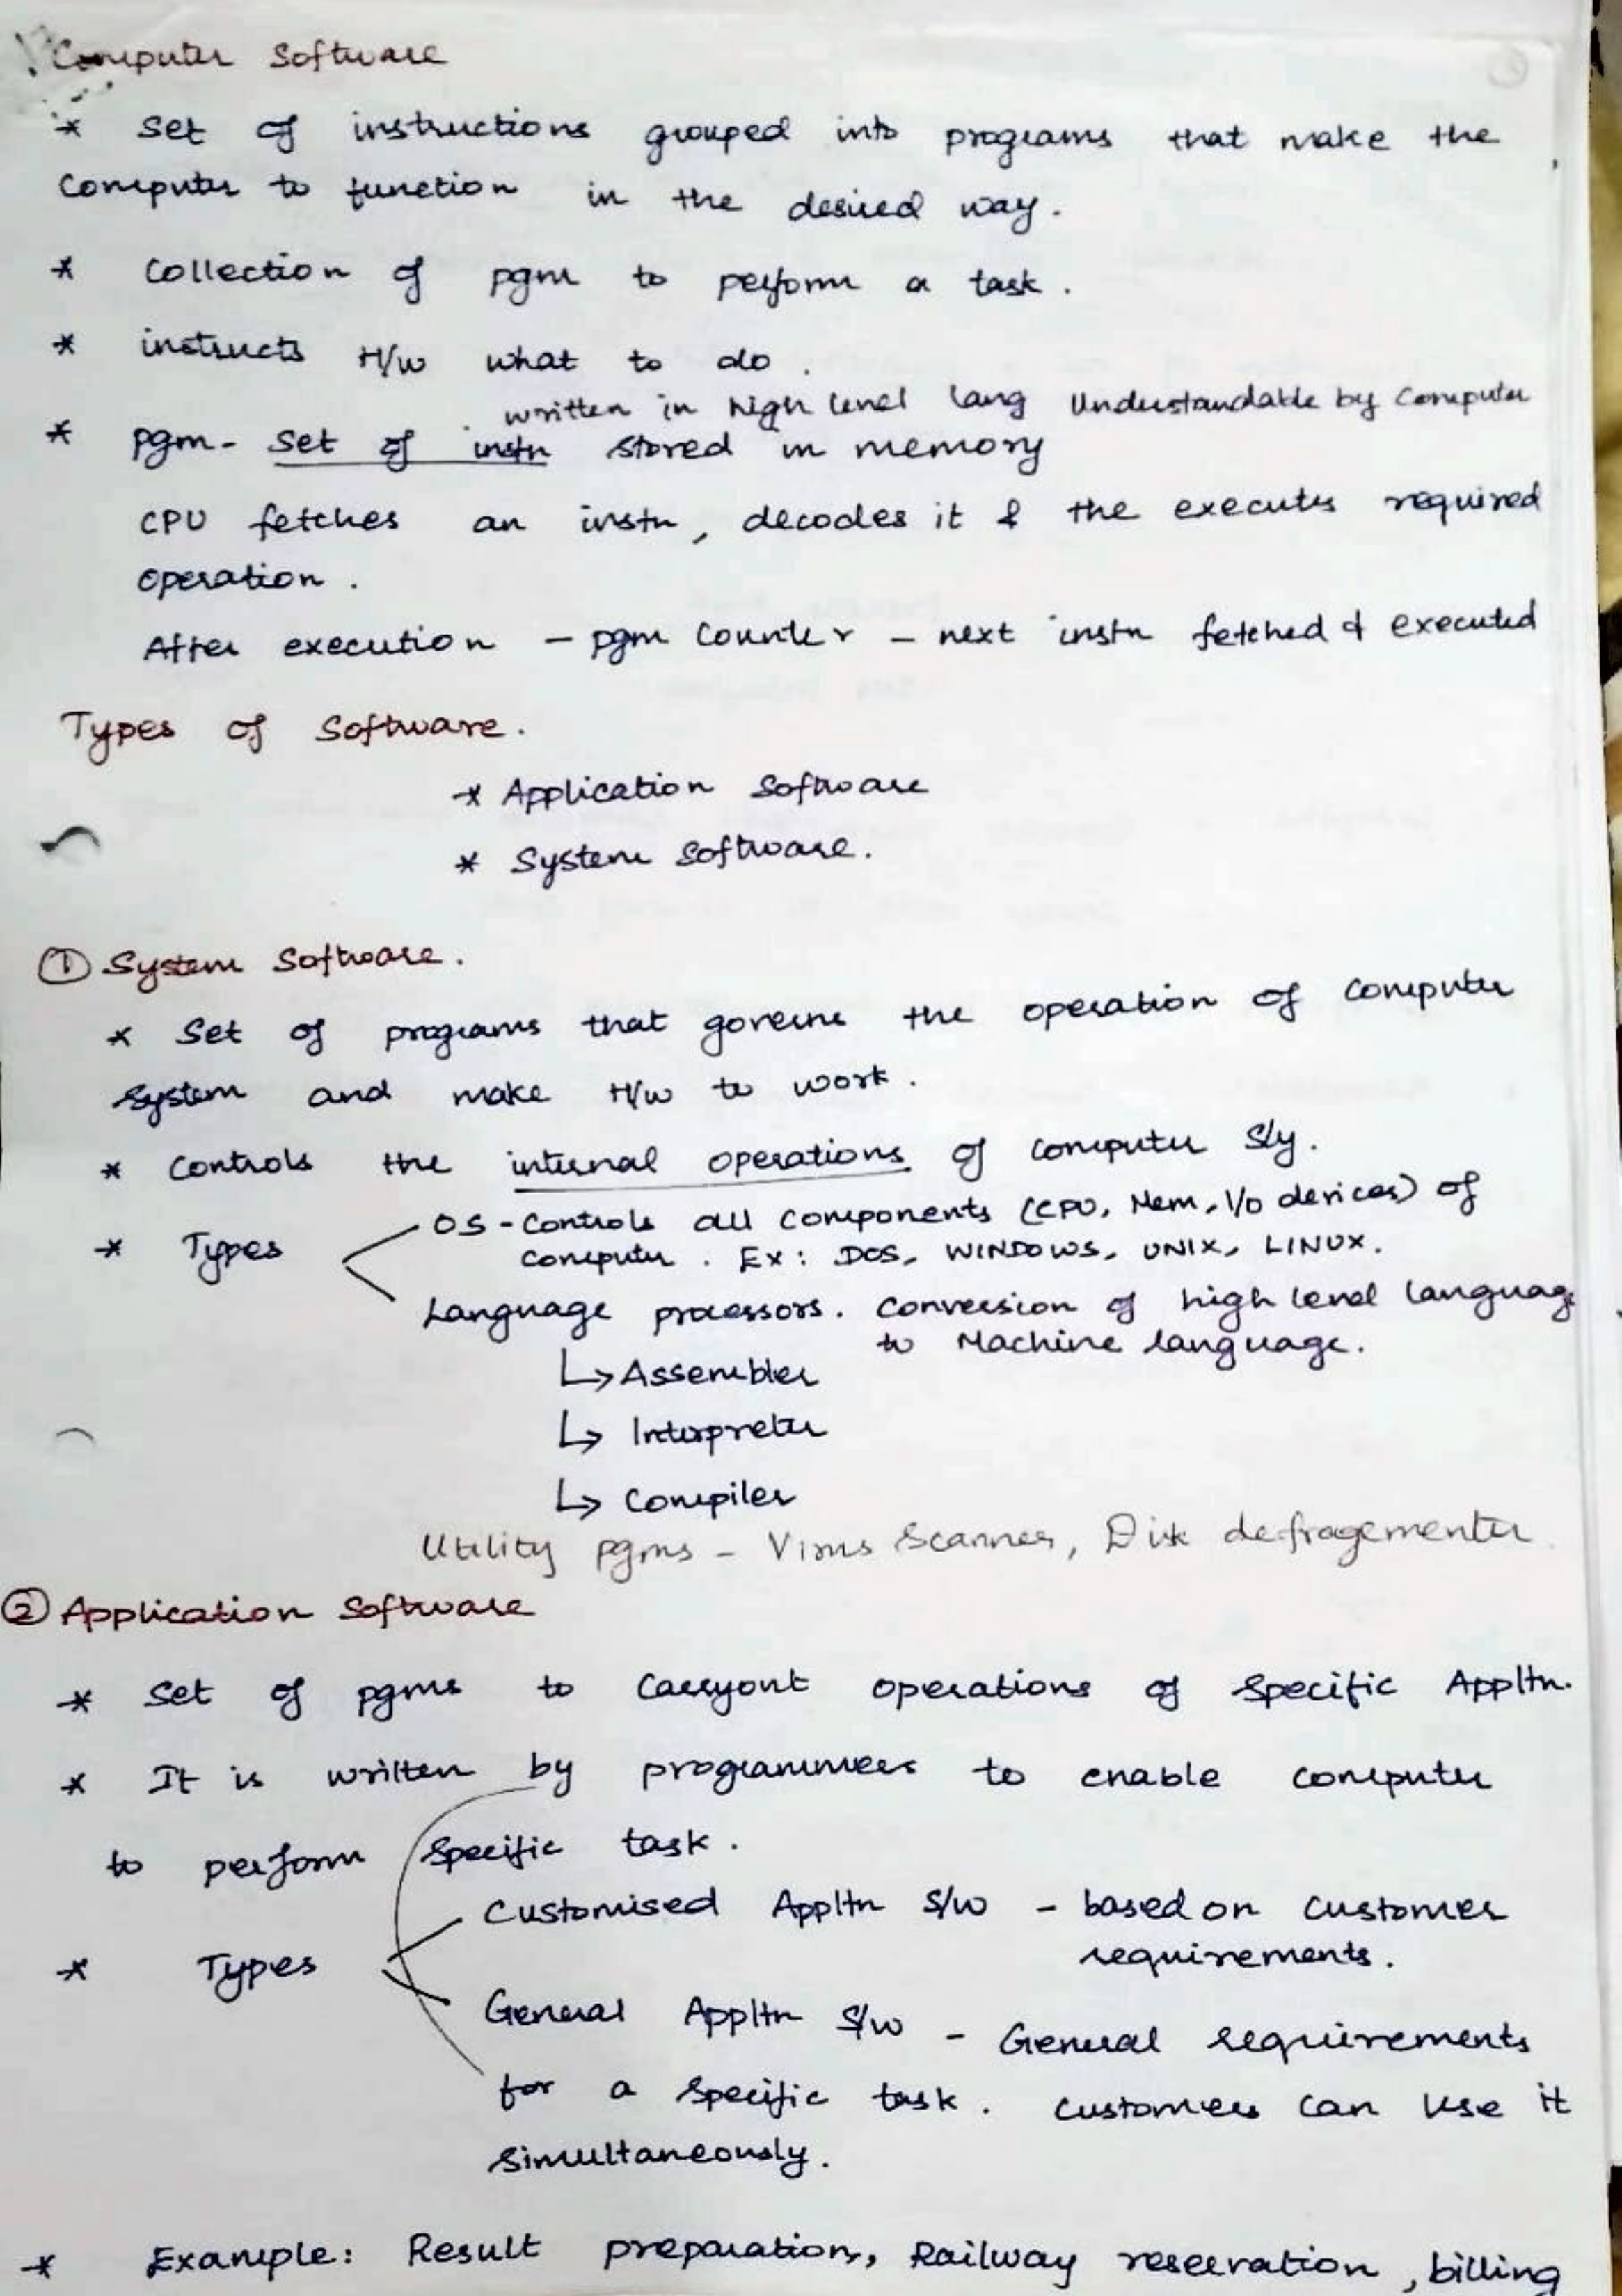 Computer Software
* Set of instructions grouped into programs that make the
Computer to function in the desired way.
* Collection of pgm to perform a task.
* instructs H/w what to do.
written in high level lang Understandable by Computer
* pgm- Set of instn stored in memory
CPU fetches an instn, decodes it & the executes required
operation.
After execution - pgm Counter - next instn fetched & executed
Types of Software.
* Application Software
* System Software.
① System Software.
* Set of programs that governs the operation of Computer
System and make H/w to work.
* Controls the internal operations of Computer Sly.
* Types
OS - Controls all Components (CPU, Mem, I/O devices) of
Computer. Ex: DOS, WINDOWS, UNIX, LINUX.
Language processors. Conversion of high level languag
to Machine language.
↳ Assembler
↳ Interpreter
↳ Compiler
Utility pgms - Virus Scanner, Disk defragementer.
② Application Software
* Set of pgms to Carryout operations of Specific Appltn.
* It is written by programmers to enable computer
to perform Specific task.
Customised Appltn S/w - based on Customer
requirements.
* Types
General Appltn S/w - General requirements
for a Specific task. Customers Can use it
Simultaneously.
* Example: Result preparation, Railway reservation, billing